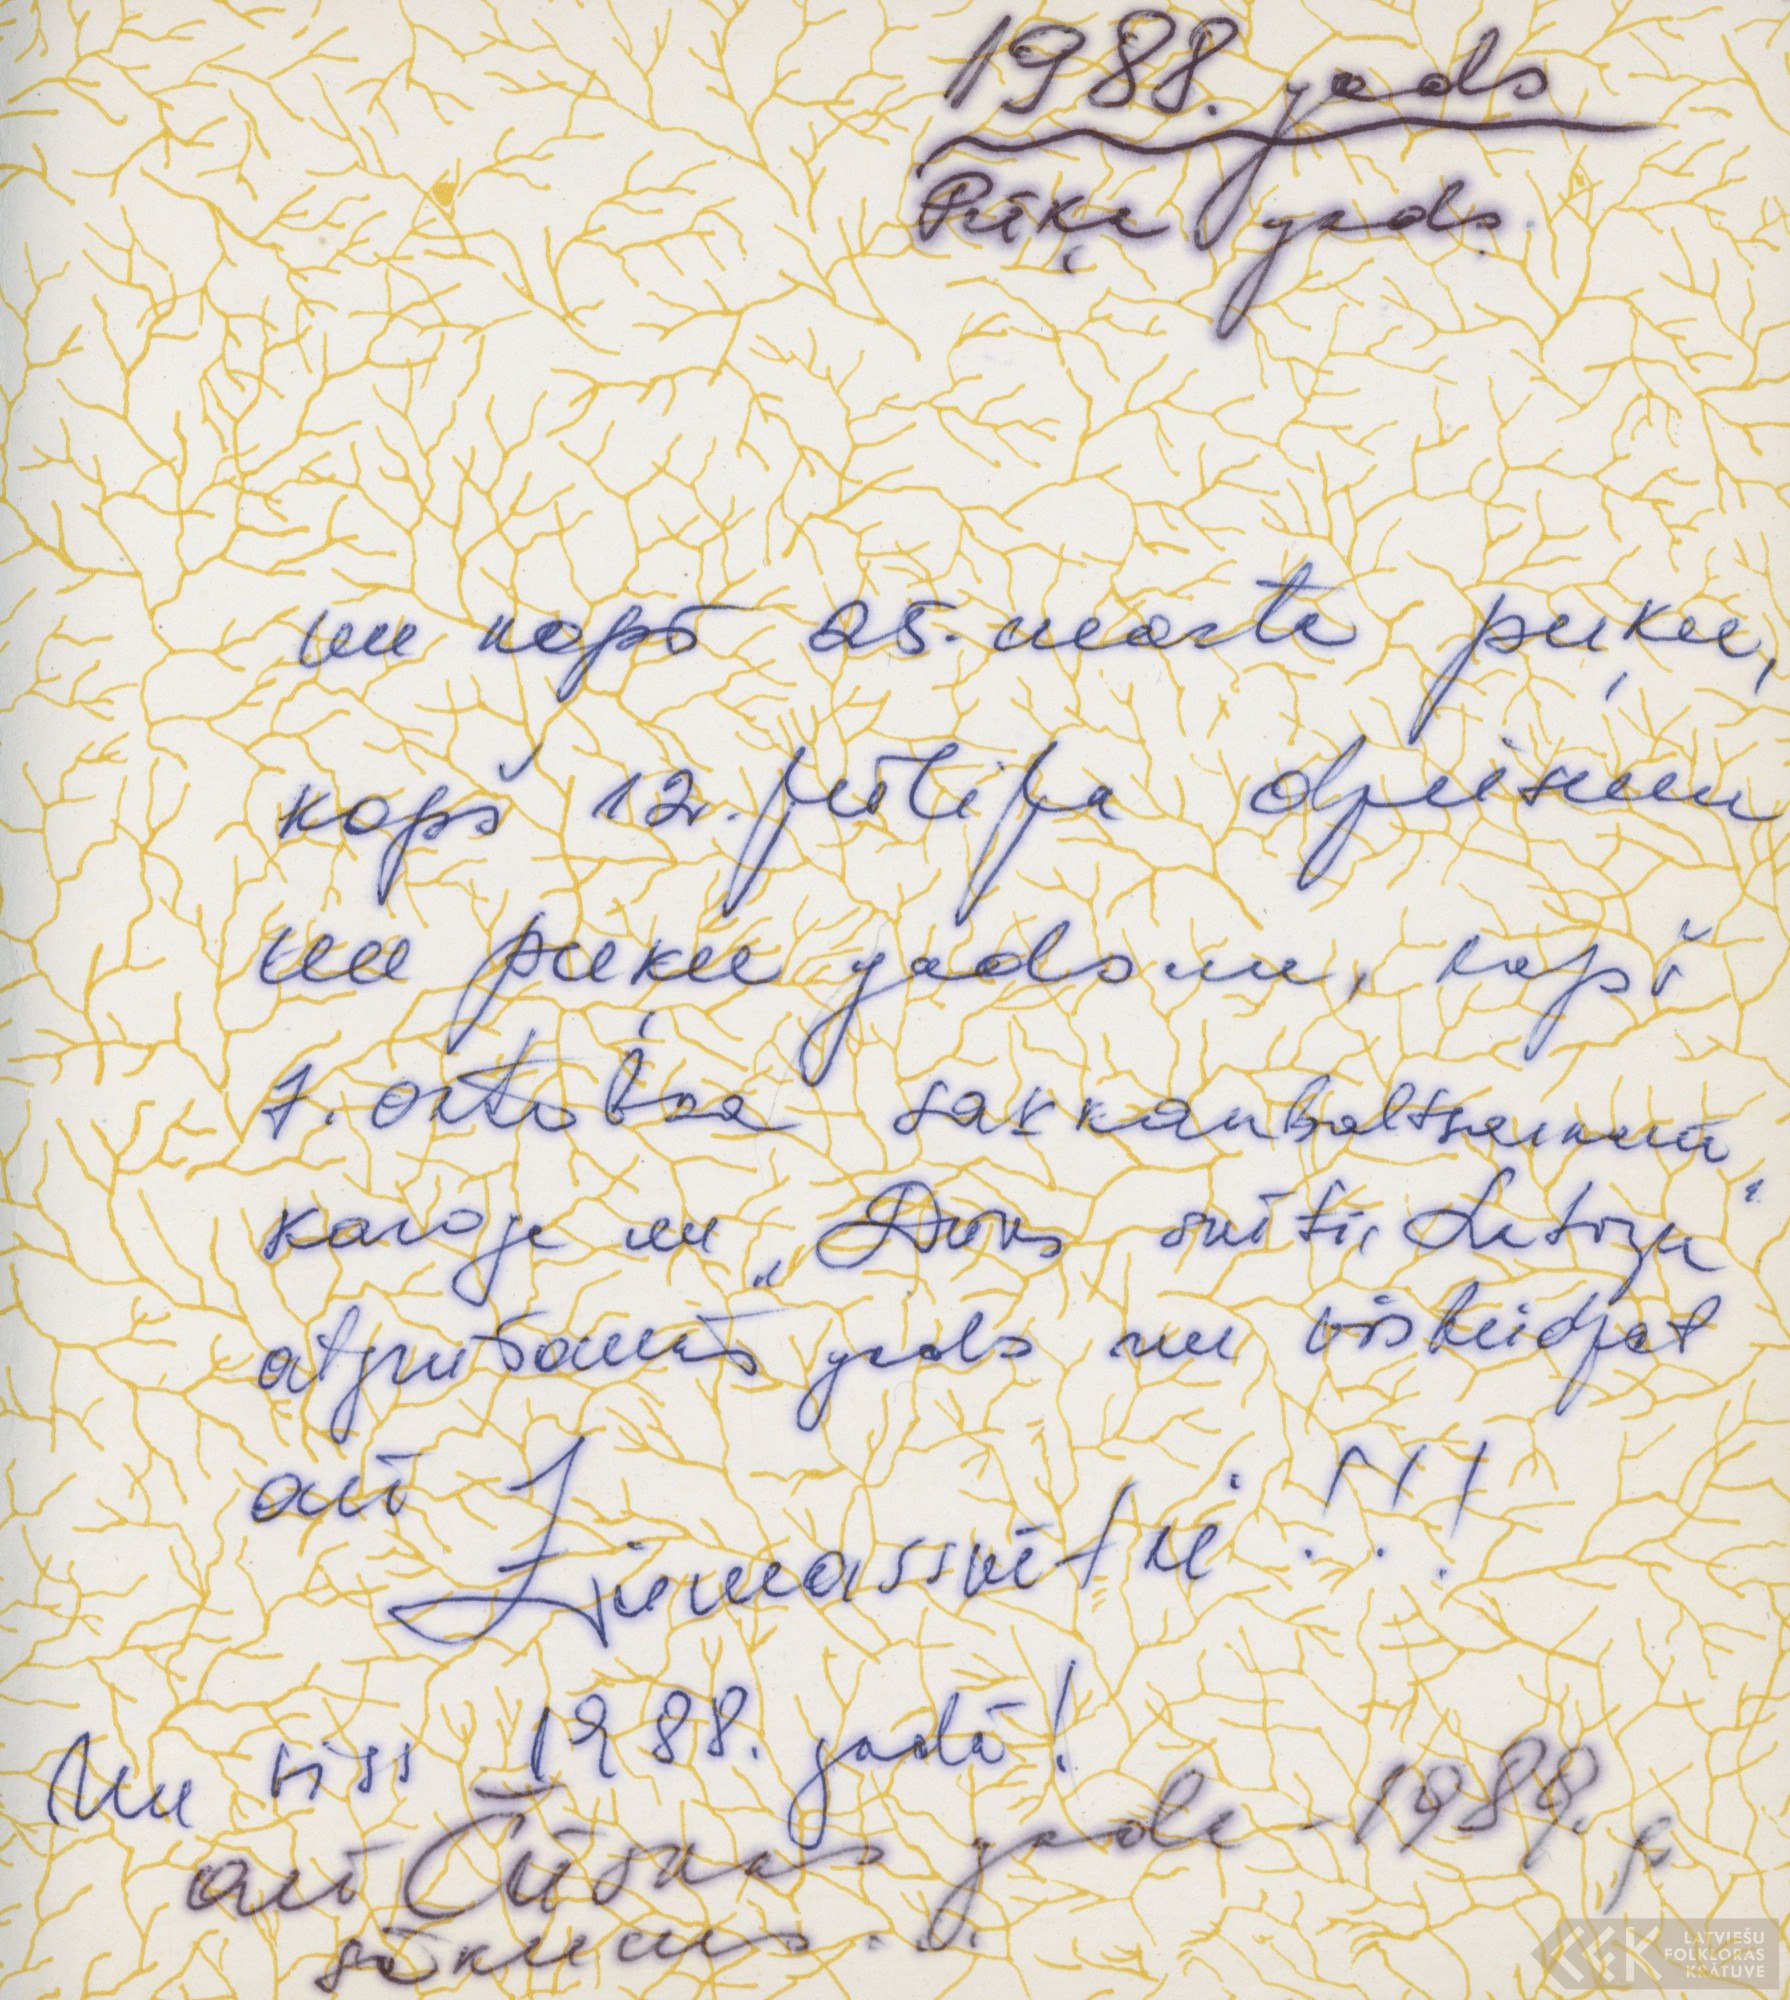 1988. gads
Pūķa gads.
un kopš 25. marta puķu,
kopš 12. jūlija dziesmu
un puķu gadsmu, kopš
7. oktobra sarkanbaltsarkanā
karoga un "Dievs svētī, Latviju"
atgriešanās gads un visbeidzot
arī
Ziemassvētki!!!
Un viss 1988. gadā!
arī Čūskas gada - 1989. g.
sākums...
LATVIEŠU
FOLKLORAS
KRĀTUVE